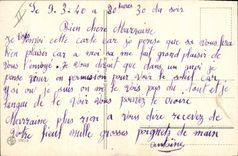 Le 9-3-40 à 20 heures 30 du soir
Bien chère Marraine
Je t'envoi cette carte car je pense que sa vous fera
bien plaisir car a moi sa me fait grand plaisir de
vous l'envoyé. Je vous dirait que dans un mois je
pense venir en permission pour voir le soleil car
ici ou je suis on ne le vois pas du tout et je
languie de le voir vous pouvez le croire
Marraine plus rien a vous dire recevez de
votre filleul mille grosses poignées de main
Antoine